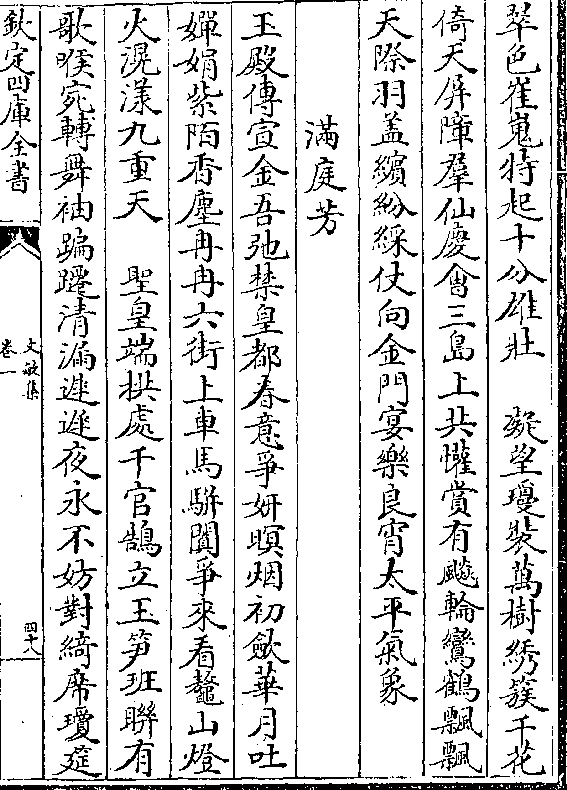 翠色崔嵬特起十分雄壯　凝望瓊裝萬樹綉簇千花
倚天屏障羣仙慶會三島上共懽賞有飈輪鸞鶴飄飄
天際羽盖繽紛綵仗向金門宴樂良宵太平氣象
滿庭芳
玉殿傳宣金吾弛禁皇都春意爭妍暝烟初歛華月吐
嬋娟紫陌香塵冉冉六街上車馬駢闐爭來看鼇山燈
火滉漾九重天　聖皇端拱處千官鵠立玉笋班聯有
歌喉宛轉舞袖蹁蹮清漏遲遲夜永不妨對綺席瓊筵
欽定四庫全書
文敏集
卷一
四十八